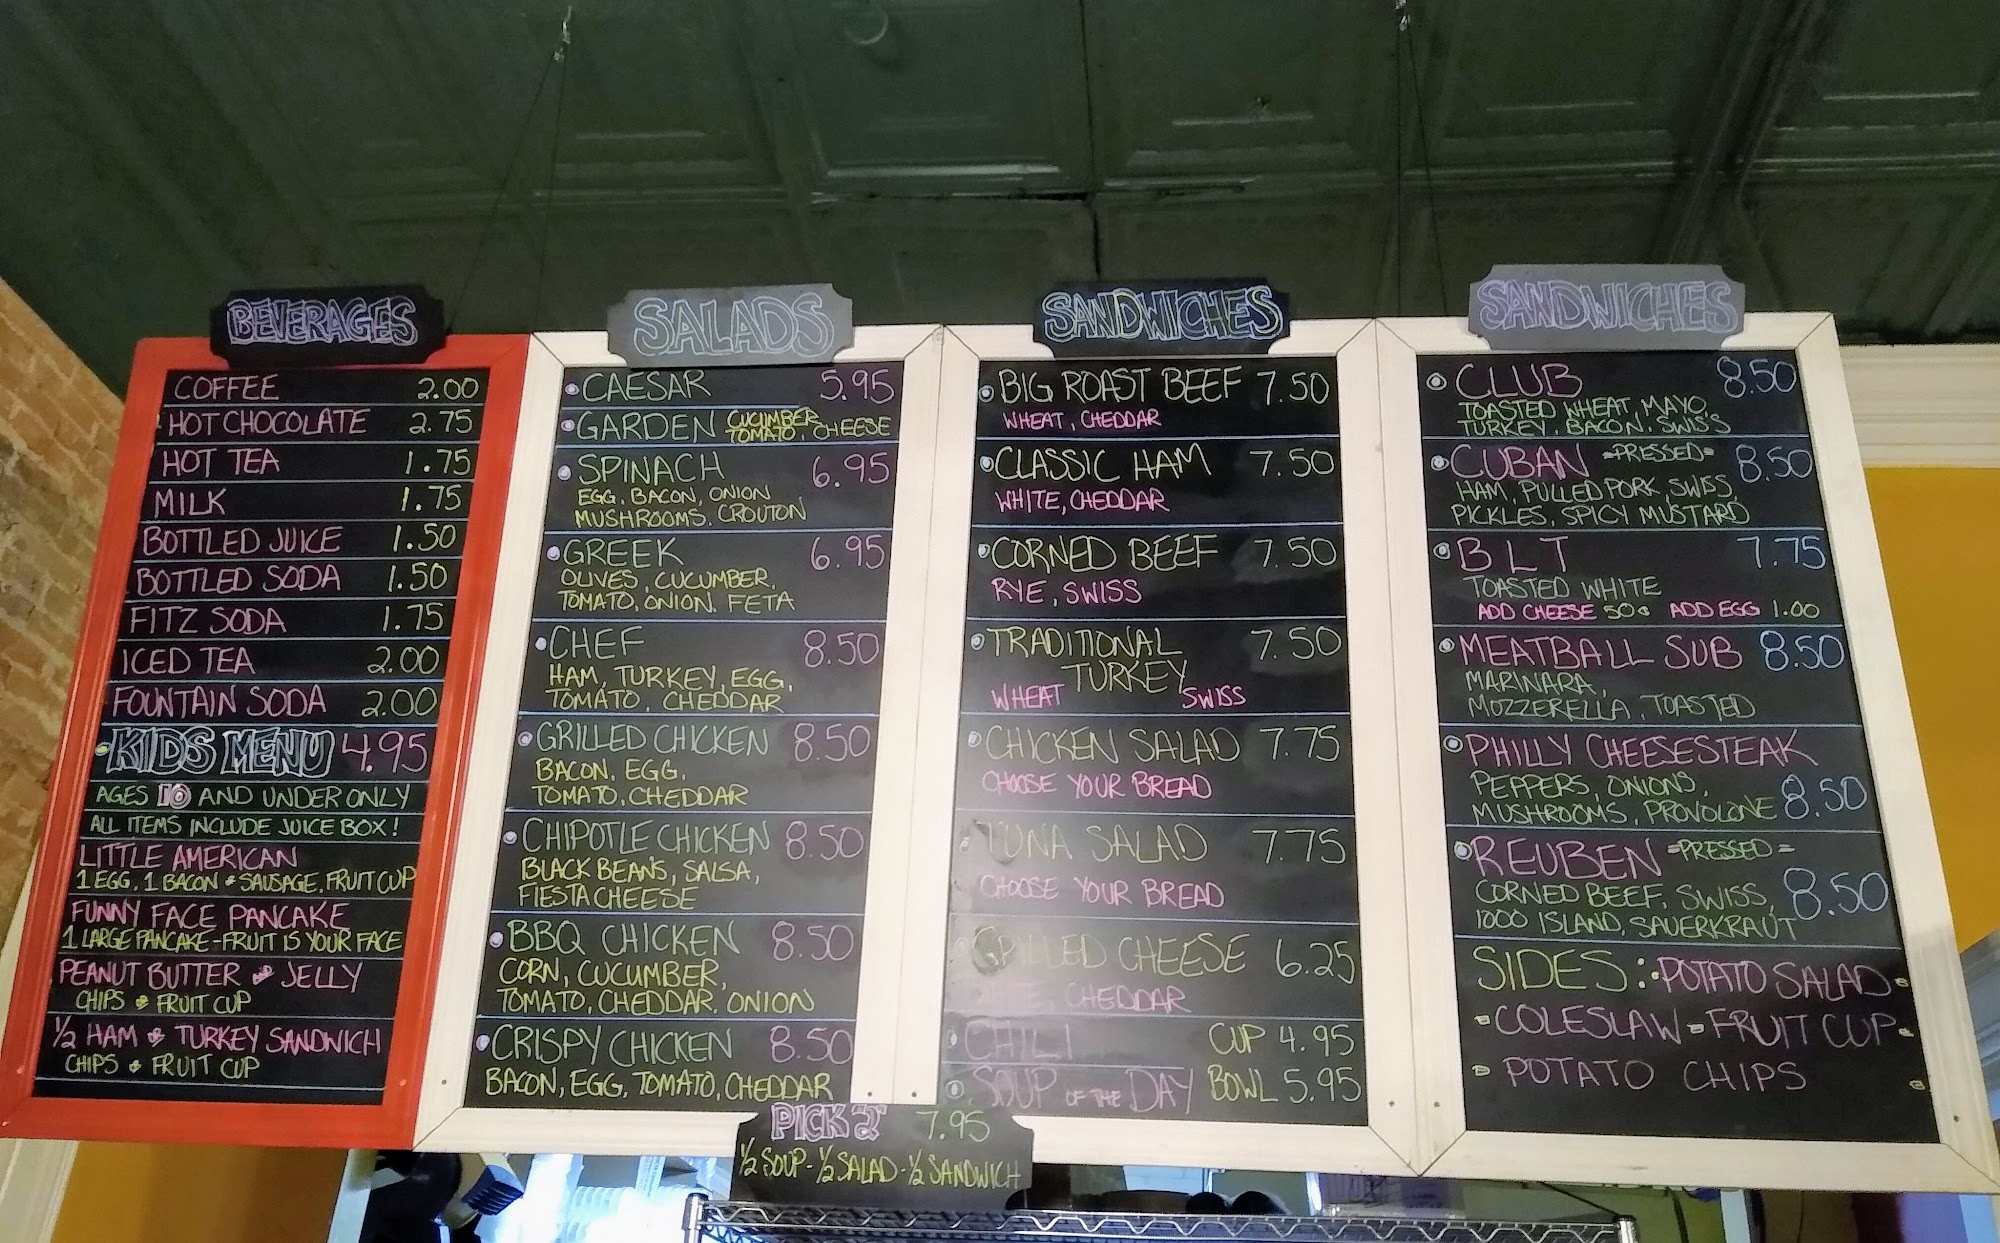 BEVERAGES
COFFEE 2.00
HOT CHOCOLATE 2.75
HOT TEA 1.75
MILK 1.75
BOTTLED JUICE 1.50
BOTTLED SODA 1.50
FITZ SODA 1.75
ICED TEA 2.00
FOUNTAIN SODA 2.00
KIDS MENU 4.95
AGES 10 AND UNDER ONLY
ALL ITEMS INCLUDE JUICE BOX!
LITTLE AMERICAN
1 EGG, 1 BACON & SAUSAGE, FRUIT CUP
FUNNY FACE PANCAKE
1 LARGE PANCAKE - FRUIT IS YOUR FACE
PEANUT BUTTER AND JELLY
CHIPS & FRUIT CUP
1/2 HAM & TURKEY SANDWICH
CHIPS & FRUIT CUP
SALADS
CAESAR 5.95
GARDEN CUCUMBER,
TOMATO, CHEESE
SPINACH 6.95
EGG, BACON, ONION
MUSHROOMS, CROUTON
GREEK 6.95
OLIVES, CUCUMBER,
TOMATO, ONION, FETA
CHEF 8.50
HAM, TURKEY, EGG,
TOMATO, CHEDDAR
GRILLED CHICKEN 8.50
BACON, EGG,
TOMATO, CHEDDAR
CHIPOTLE CHICKEN 8.50
BLACK BEANS, SALSA,
FIESTA CHEESE
BBQ CHICKEN 8.50
CORN, CUCUMBER,
TOMATO, CHEDDAR, ONION
CRISPY CHICKEN 8.50
BACON, EGG, TOMATO, CHEDDAR
PICK 2 7.95
1/2 SOUP - 1/2 SALAD - 1/2 SANDWICH
SANDWICHES
BIG ROAST BEEF 7.50
WHEAT, CHEDDAR
CLASSIC HAM 7.50
WHITE, CHEDDAR
CORNED BEEF 7.50
RYE, SWISS
TRADITIONAL 7.50
TURKEY
WHEAT SWISS
CHICKEN SALAD 7.75
CHOOSE YOUR BREAD
TUNA SALAD 7.75
CHOOSE YOUR BREAD
GRILLED CHEESE 6.25
CHEDDAR
CHILI CUP 4.95
SOUP OF THE DAY BOWL 5.95
SANDWICHES
CLUB 8.50
TOASTED WHEAT, MAYO,
TURKEY, BACON, SWISS
CUBAN =PRESSED= 8.50
HAM, PULLED PORK, SWISS,
PICKLES, SPICY MUSTARD
BLT 7.75
TOASTED WHITE
ADD CHEESE 50¢ ADD EGG 1.00
MEATBALL SUB 8.50
MARINARA,
MOZZERELLA, TOASTED
PHILLY CHEESESTEAK
PEPPERS, ONIONS,
MUSHROOMS, PROVOLONE 8.50
REUBEN =PRESSED=
CORNED BEEF, SWISS, 8.50
1000 ISLAND, SAUERKRAUT
SIDES: POTATO SALAD -
- COLESLAW - FRUIT CUP -
- POTATO CHIPS -